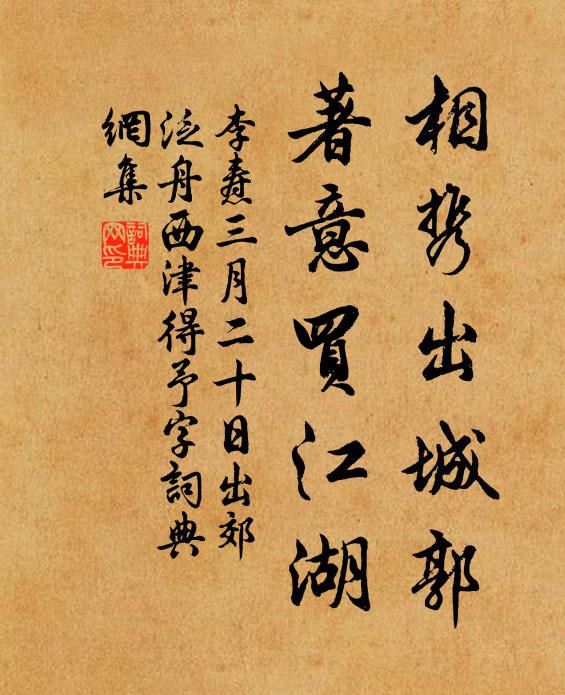 相携出城郭
著意買江湖
李焘三月二十日出郊
泛舟西津得予字詞典
網集
詞典
网印